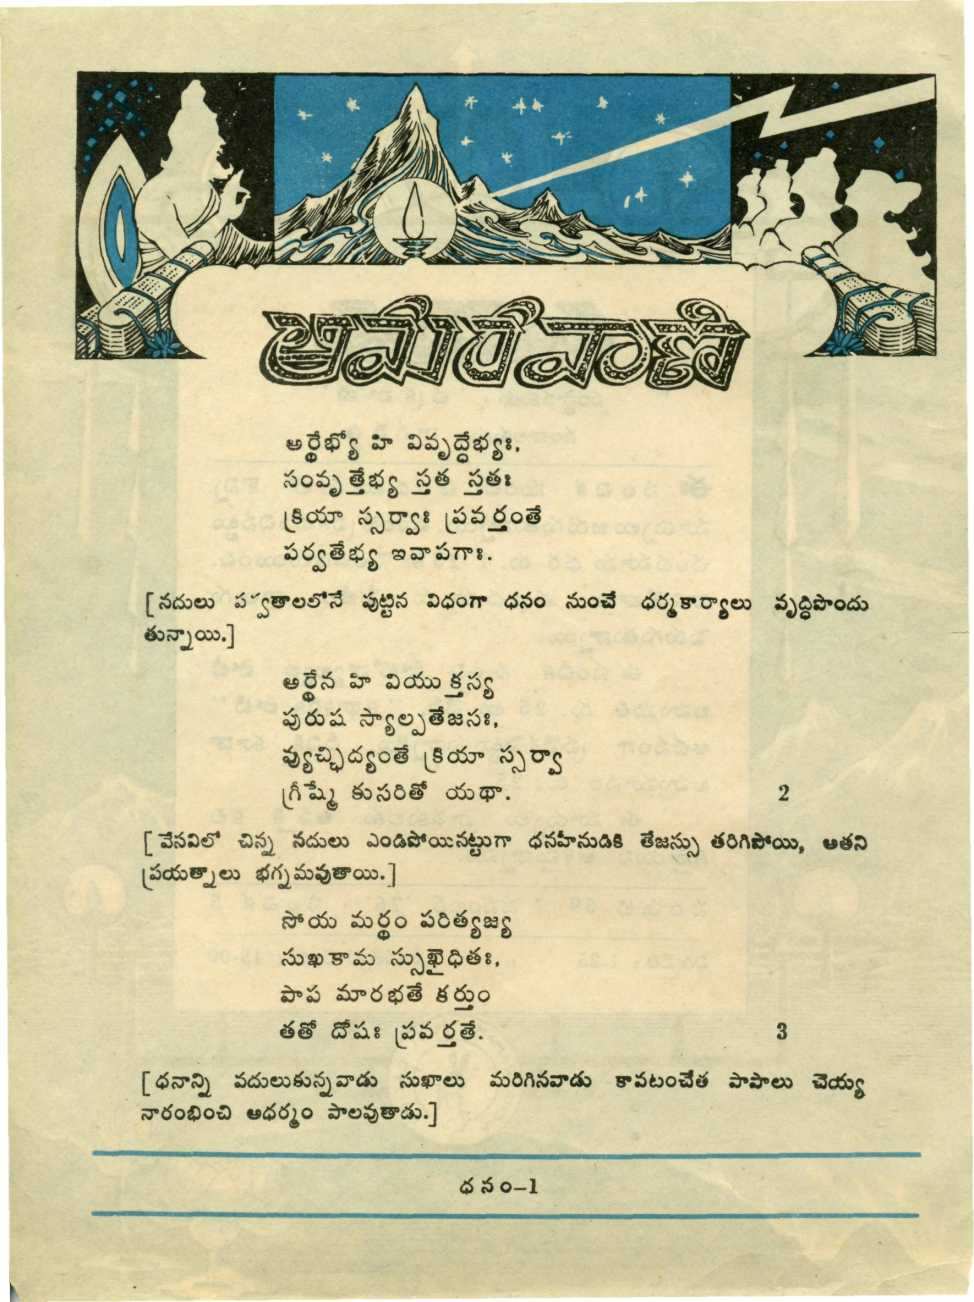 అమరవాణి
అర్థేభ్యో హి వివృద్ధేభ్యః,
సంవృత్తేభ్య స్తత స్తతః
క్రియా స్సర్వాః ప్రవర్తంతే
పర్వతేభ్య ఇవాపగాః.
[నదులు పర్వతాలలోనే పుట్టిన విధంగా ధనం నుంచే ధర్మకార్యాలు వృద్ధిపొందు
తున్నాయి.]
అర్థేన హి వియుక్తస్య
పురుష స్యాల్పతేజసః,
వ్యుచ్ఛిద్యంతే క్రియా స్సర్వా
గ్రీష్మే కుసరితో యథా. 2
[వేసవిలో చిన్న నదులు ఎండిపోయినట్టుగా ధనహీనుడికి తేజస్సు తరిగిపోయి, అతని
ప్రయత్నాలు భగ్నమవుతాయి.]
సోయ మర్థం పరిత్యజ్య
సుఖకామ స్సుఖైధితః,
పాప మారభతే కర్తుం
తతో దోషః ప్రవర్తతే. 3
[ధనాన్ని వదులుకున్నవాడు సుఖాలు మరిగినవాడు కావటంచేత పాపాలు చెయ్య
నారంభించి అధర్మం పాలవుతాడు.]
ధనం-1